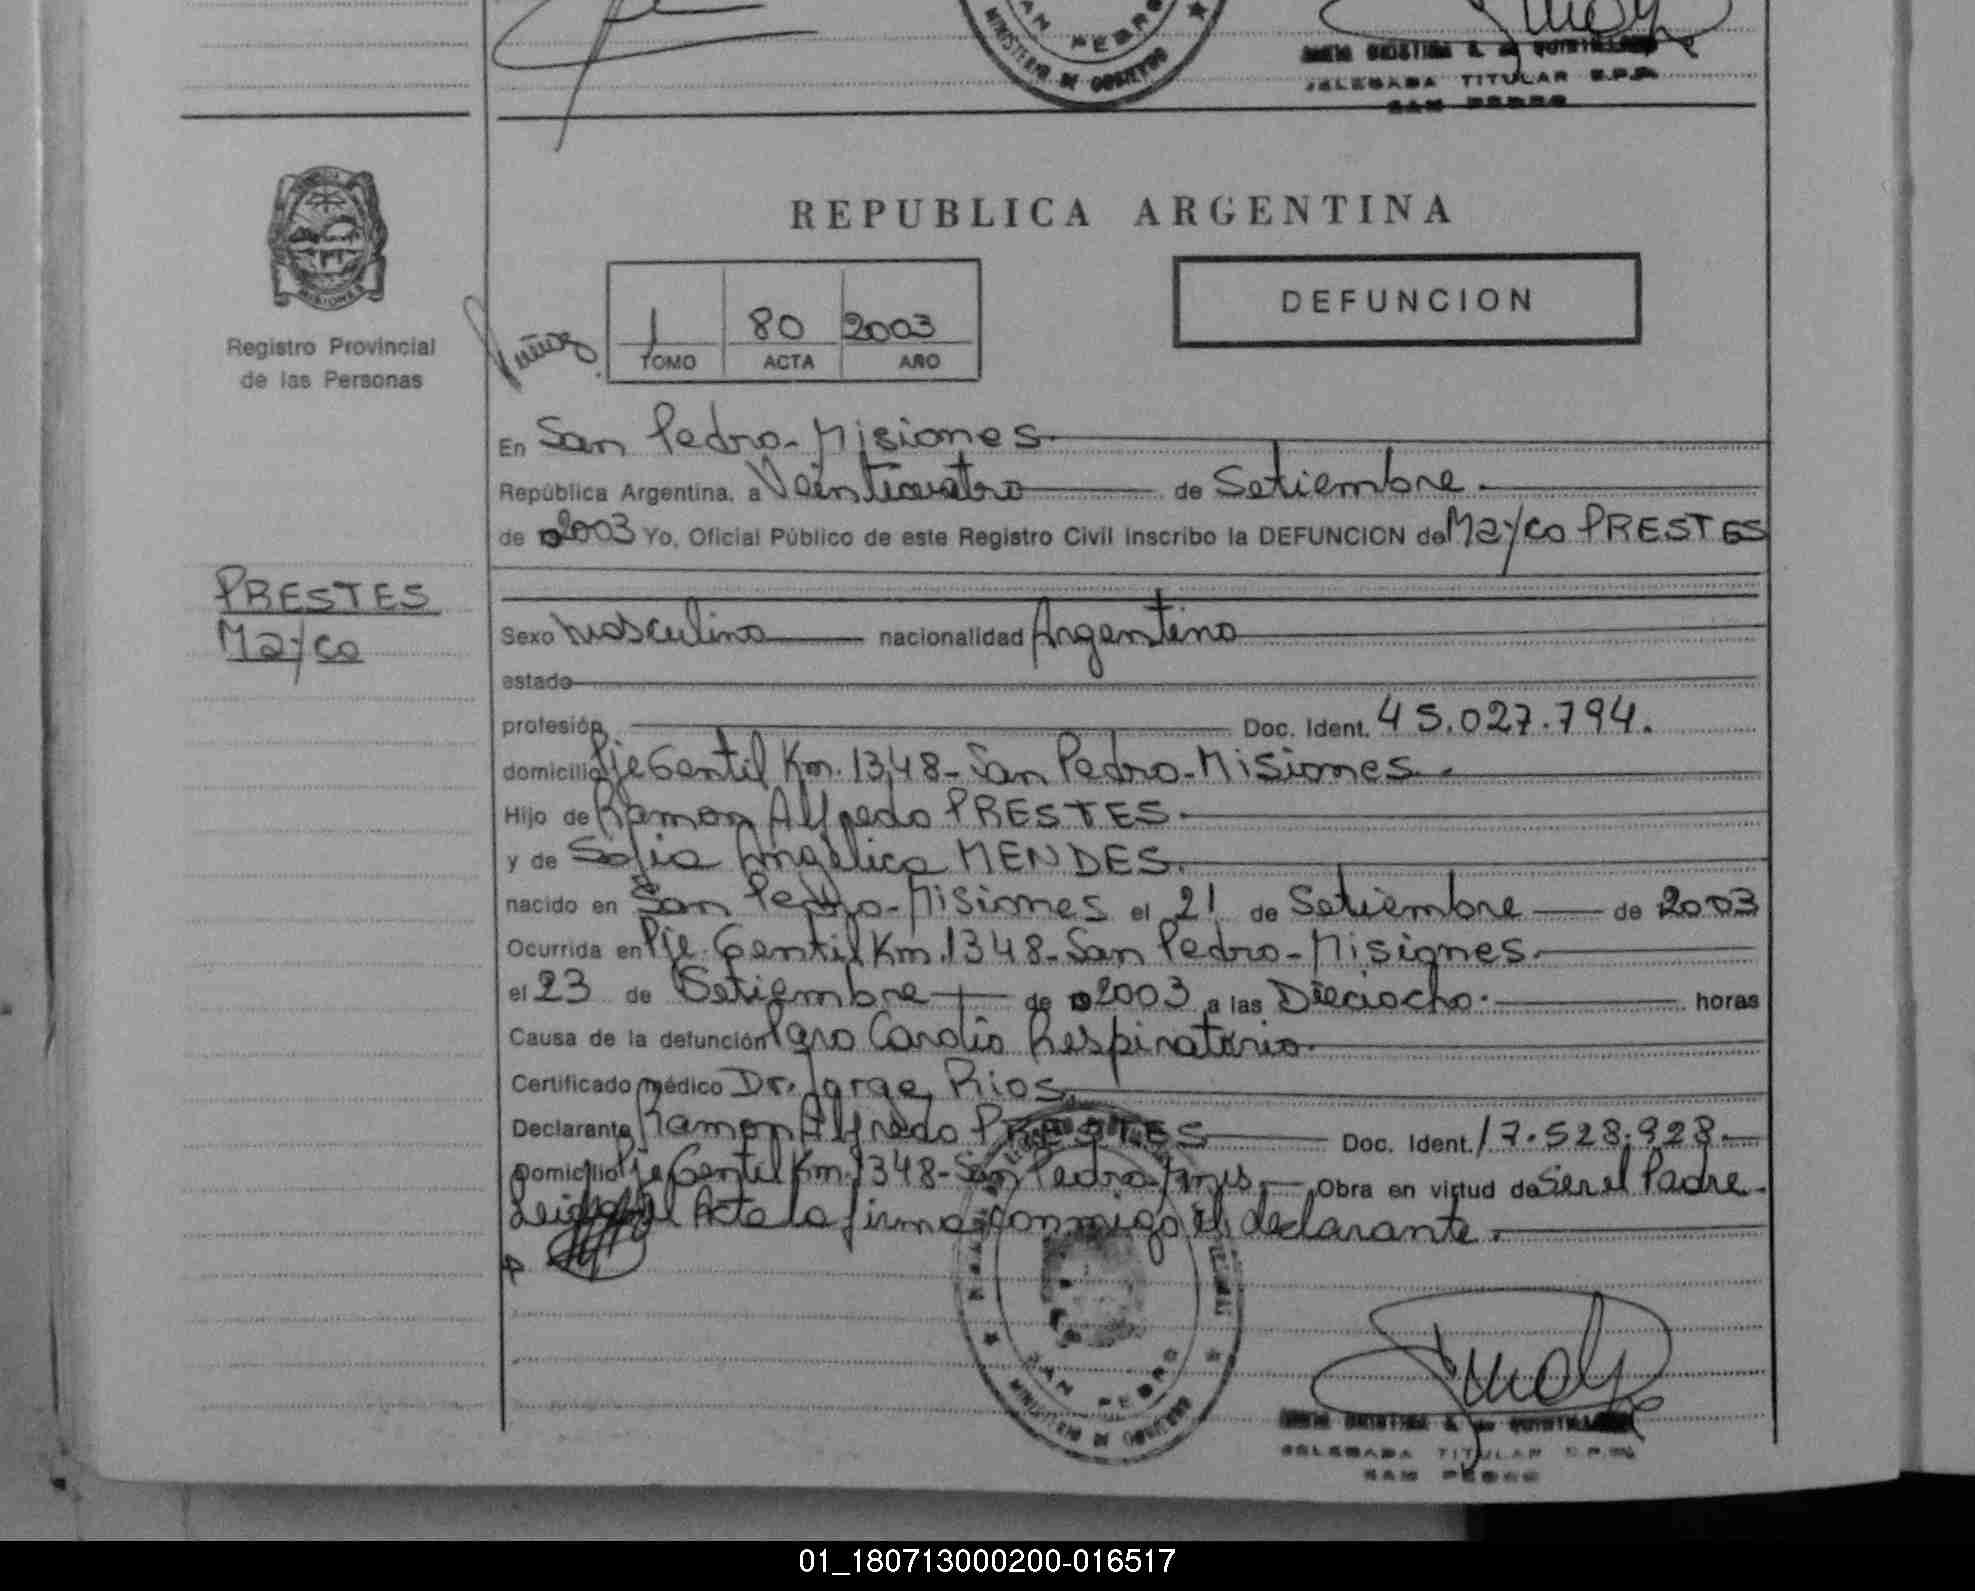 SAN PEDRO
MINISTERIO DE GOBIERNO
DELEGADA TITULAR
SAN PEDRO
MISIONES
Registro Provincial
de las Personas
REPUBLICA ARGENTINA
1 80 2003
TOMO ACTA AÑO
DEFUNCION
En San Pedro-Misiones
República Argentina, a Veinticuatro de Setiembre
de 2003 Yo, Oficial Público de este Registro Civil inscribo la DEFUNCION de Mayco PRESTES
PRESTES
Mayco
Sexo Masculino nacionalidad Argentino
estado
profesión Doc. Ident. 45.027.794.
domicilio Pje Gentil Km. 1348-San Pedro-Misiones.
Hijo de Ramon Alfredo PRESTES.
y de Sofia Angelica MENDES.
nacido en San Pedro-Misiones el 21 de Setiembre de 2003
Ocurrida en Pje. Gentil Km. 1348-San Pedro-Misiones.
el 23 de Setiembre de 2003 a las Dieciocho. horas
Causa de la defunción Paro Cardio Respiratorio.
Certificado médico Dr. Jorge Rios
Declarante Ramon Alfredo PRESTES Doc. Ident. 17.528.928.
Domicilio Pje Gentil Km. 1348-San Pedro Obra en virtud de Ser el Padre.
Leida el Acta la firma conmigo el declarante.
SAN PEDRO
MINISTERIO DE GOBIERNO
DELEGADA TITULAR
SAN PEDRO
01_180713000200-016517